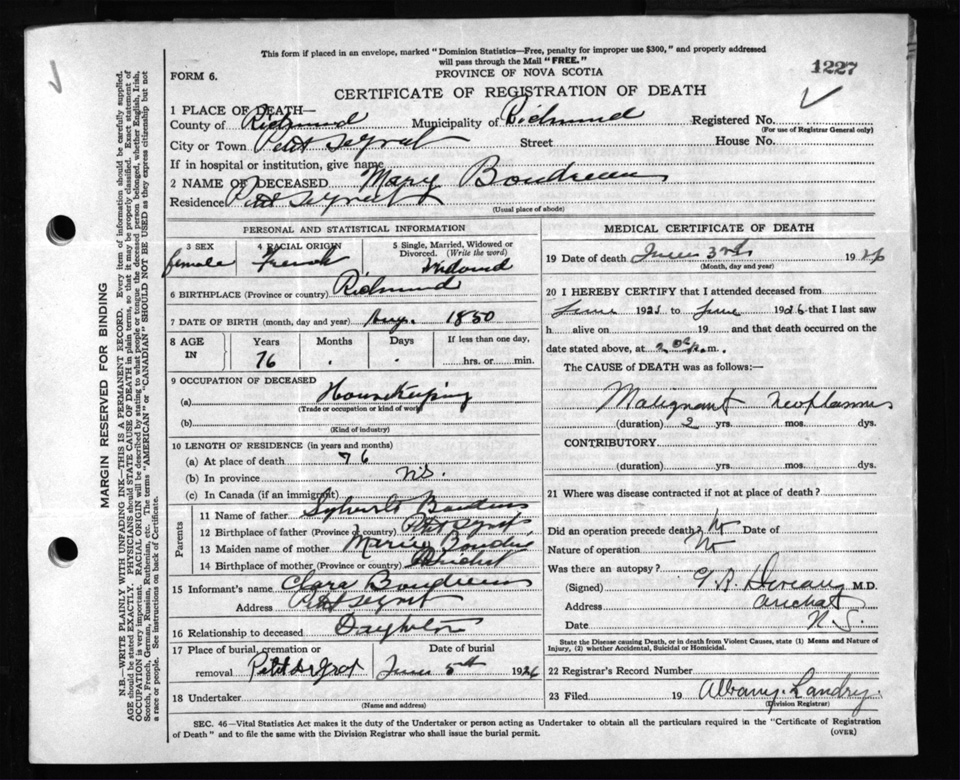 This form if placed in an envelope, marked "Dominion Statistics—Free, penalty for improper use $300," and properly addressed
will pass through the Mail "FREE."
FORM 6.
PROVINCE OF NOVA SCOTIA
1227
CERTIFICATE OF REGISTRATION OF DEATH
1 PLACE OF DEATH—
County of Richmond Municipality of Richmond Registered No.
(For use of Registrar General only)
City or Town Petit de Grat Street House No.
If in hospital or institution, give name
2 NAME OF DECEASED Mary Boudreau
Residence Petit de Grat
(Usual place of abode)
PERSONAL AND STATISTICAL INFORMATION
3 SEX 4 RACIAL ORIGIN 5 Single, Married, Widowed or
Divorced. (Write the word)
female French Widowed
6 BIRTHPLACE (Province or country) Richmond
7 DATE OF BIRTH (month, day and year) Aug. 1850
8 AGE IN Years Months Days If less than one day,
76 . . hrs. or min.
9 OCCUPATION OF DECEASED
(a) Housekeeping
(Trade or occupation or kind of work)
(b)
(Kind of industry)
10 LENGTH OF RESIDENCE (in years and months)
(a) At place of death 76
(b) In province N.S.
(c) In Canada (if an immigrant)
Parents
11 Name of father
12 Birthplace of father (Province or country) Petit de Grat
13 Maiden name of mother
14 Birthplace of mother (Province or country) Arichat
15 Informant's name Clara Boudreau
Address Petit de Grat
16 Relationship to deceased Daughter
17 Place of burial, cremation or Date of burial
removal Petit de Grat June 5th 1926
18 Undertaker
(Name and address)
MEDICAL CERTIFICATE OF DEATH
19 Date of death June 3rd 1926
(Month, day and year)
20 I HEREBY CERTIFY that I attended deceased from
June 192 to June 1926 that I last saw
h alive on 19 and that death occurred on
date stated above, at 2 p.m.
The CAUSE of DEATH was as follows:—
Malignant neoplasms
(duration) 2 yrs. mos. dys.
CONTRIBUTORY
(duration) yrs. mos. dys.
21 Where was disease contracted if not at place of death?
Did an operation precede death? No Date of
Nature of operation No
Was there an autopsy?
(Signed) M.D.
Address Arichat
Date N.S.
State the Disease causing Death, or in death from Violent Causes, state (1) Means and Nature of
Injury, (2) whether Accidental, Suicidal or Homicidal.
22 Registrar's Record Number
23 Filed 19 Albany Landry.
(Division Registrar)
SEC. 46—Vital Statistics Act makes it the duty of the Undertaker or person acting as Undertaker to obtain all the particulars required in the "Certificate of Registration
of Death" and to file the same with the Division Registrar who shall issue the burial permit.
(OVER)
MARGIN RESERVED FOR BINDING
N.B.—WRITE PLAINLY WITH UNFADING INK—THIS IS A PERMANENT RECORD. Every item of information should be carefully supplied.
AGE should be stated EXACTLY. PHYSICIANS should STATE CAUSE OF DEATH in plain terms, so that it may be properly classified. Exact statement of
OCCUPATION is very important. RACIAL ORIGIN will be described by stating to what people or tongue the deceased person belonged, whether English, Irish,
Scotch, French, German, Russian, Ruthenian, etc. The terms "AMERICAN" or "CANADIAN" SHOULD NOT BE USED as they express citizenship but not
a race or people. See instructions on back of Certificate.